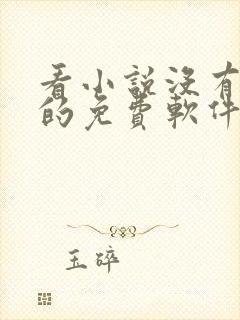 看小說沒有
的免費軟件
玉碎